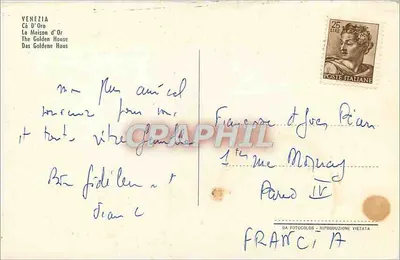 VENEZIA
Cà D'Oro
La Maison d'Or
The Golden House
Das Goldene Haus
25
LIRE
POSTE ITALIANE
mon plus amical
souvenir pour vous
et toute votre famille
Bien fidèlement
CPRPHIL
Françoise et Yves
1 rue Mornay
Paris IV
FRANCIA
DA FOTOCOLOR - RIPRODUZIONE VIETATA